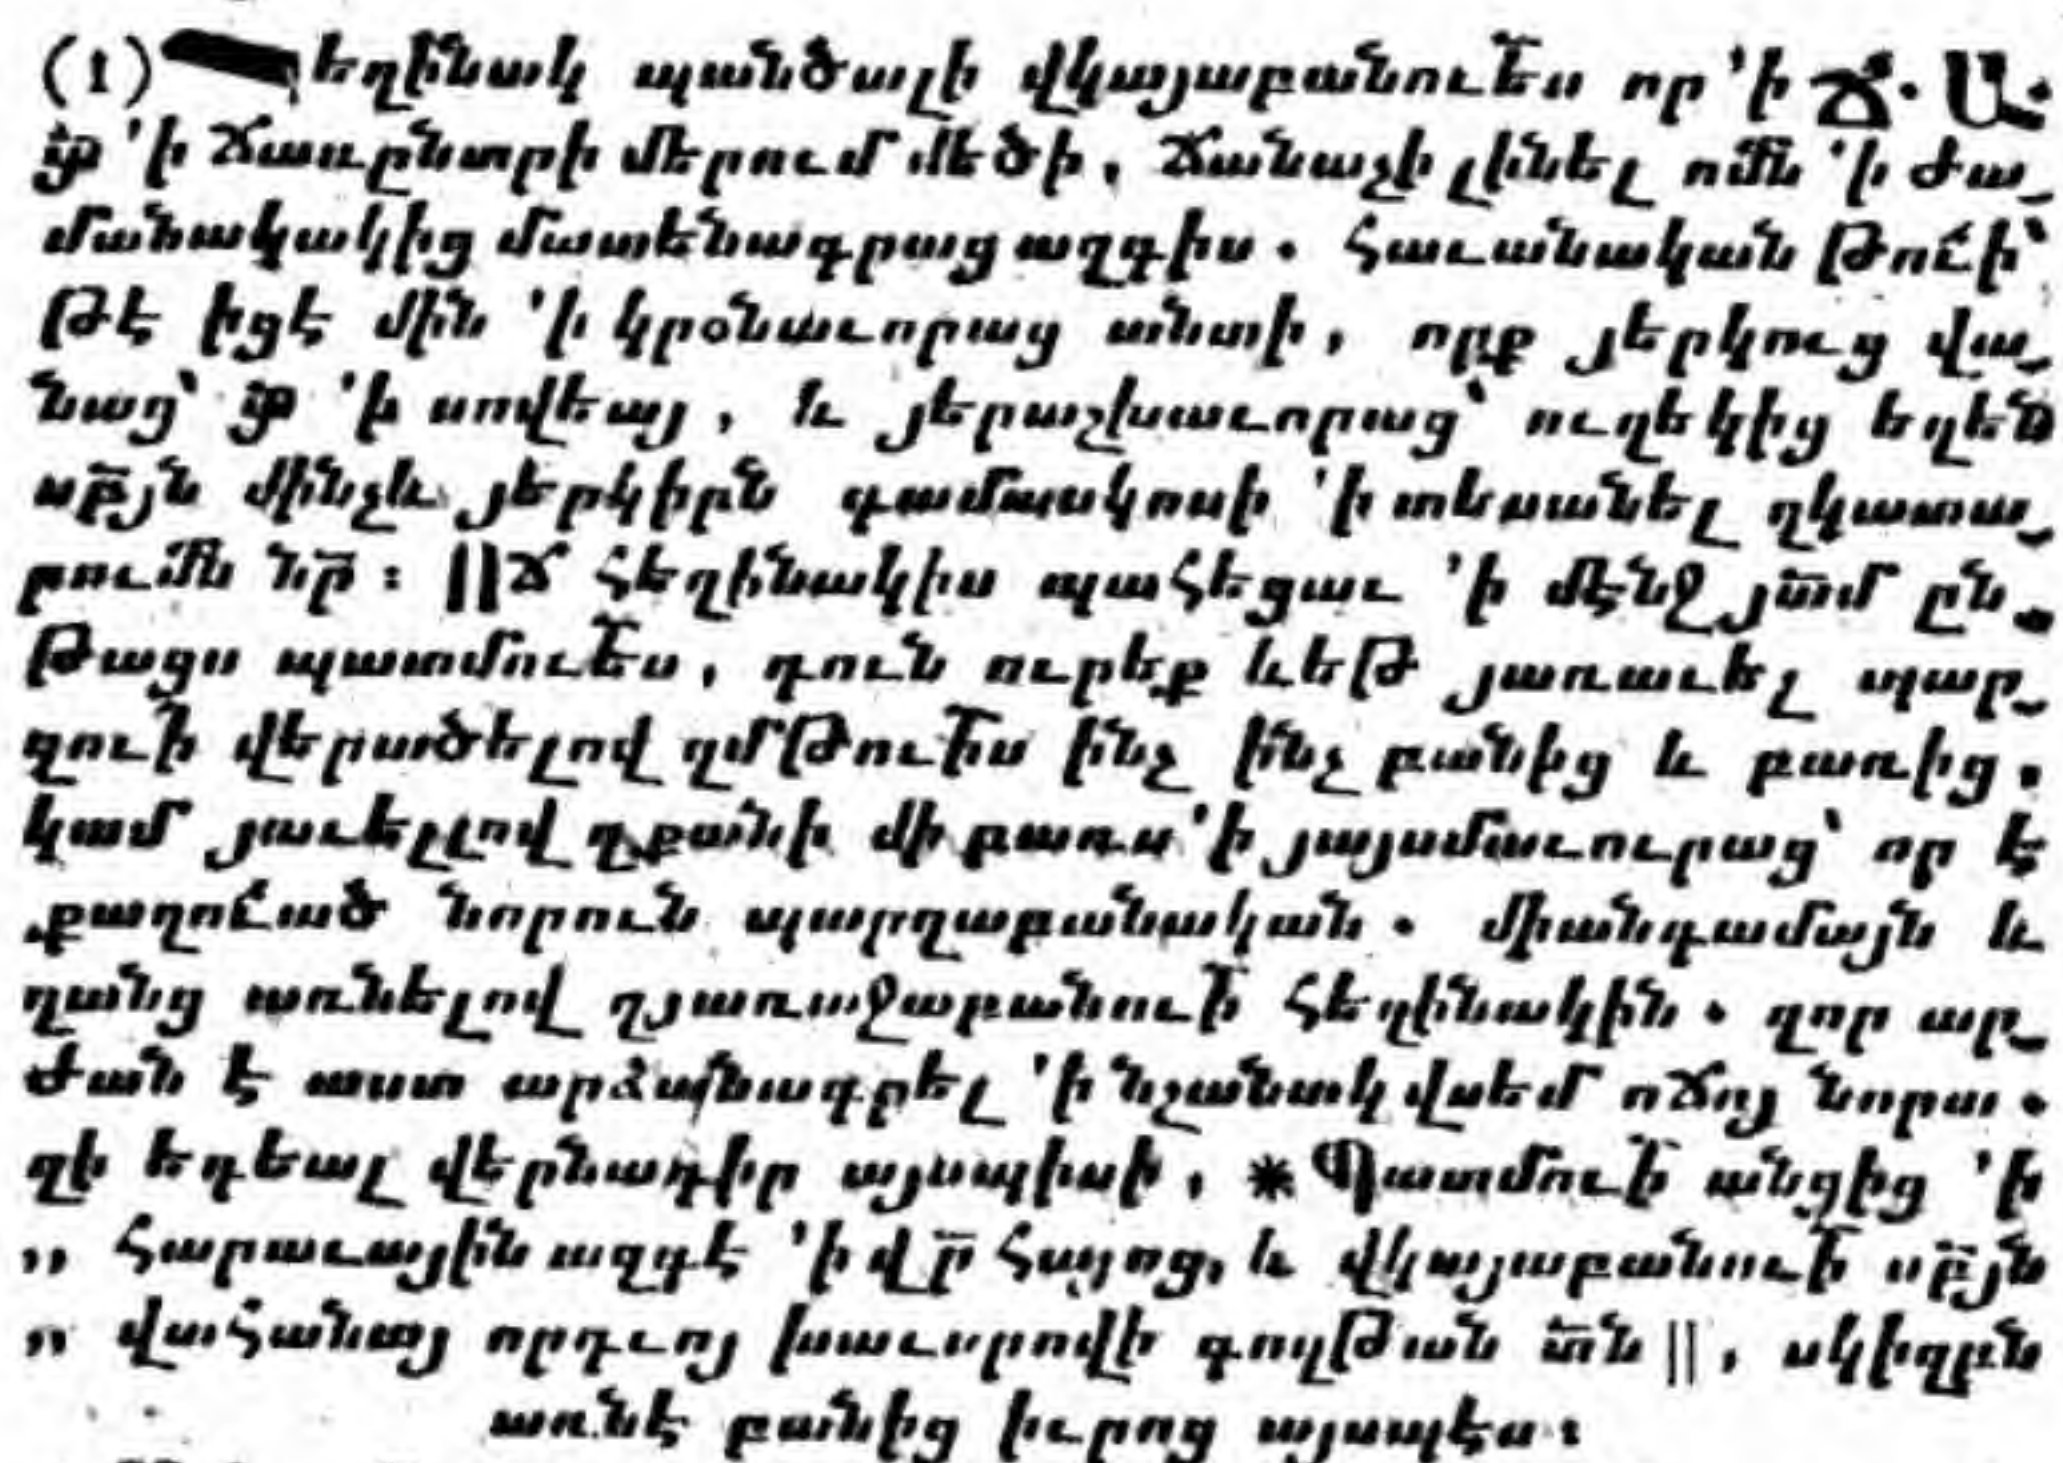 (1) եղինակ պանծալի վկայաբանուէս որ 'ի Ճ. Ա.
'ի Ճառընտրի մերում մեծի, ճանաչի լինել ոմն 'ի ժա֊
մանակակից մատենագրաց ազգիս. հաւանական թուի՝
թէ իցէ մին 'ի կրօնաւորաց անտի, որք յերկուց վա֊
նաց՝ 'ի սովեայ, և յերաշխաւորաց՝ ուղեկից եղեն
սրբյն մինչև յերկիրն գամասկոսի 'ի տեսանել զկատա֊
րումն նր։ ||Ճ հեղինակիս պահեցաւ 'ի մէնջ յամ ըն֊
թացս պատմուէս, դուն ուրեք ևեթ յառաւել պար֊
զուի վերածելով զմթուիս ինչ ինչ բանից և բառից,
կամ յաւելլով զքանի մի բառս 'ի յայսմաւուրաց՝ որ է
քաղուած նորուն պարզաբանական. միանգամայն և
զանց առնելով զյառաջաբանուի հեղինակին. զոր ար֊
ժան է աստ արձանագրել 'ի նշանակ վսեմ ոճոյ նորա.
զի եդեալ վերնադիր այսպիսի, * Պատմուի անցից 'ի
,, հարաւային ազգէ 'ի վր հայոց, և վկայաբանուի սրբյն
,, վահանայ որդւոյ խաւսրովի գողթան տն ||, սկիզբն
առնէ բանից իւրոց այսպէս։